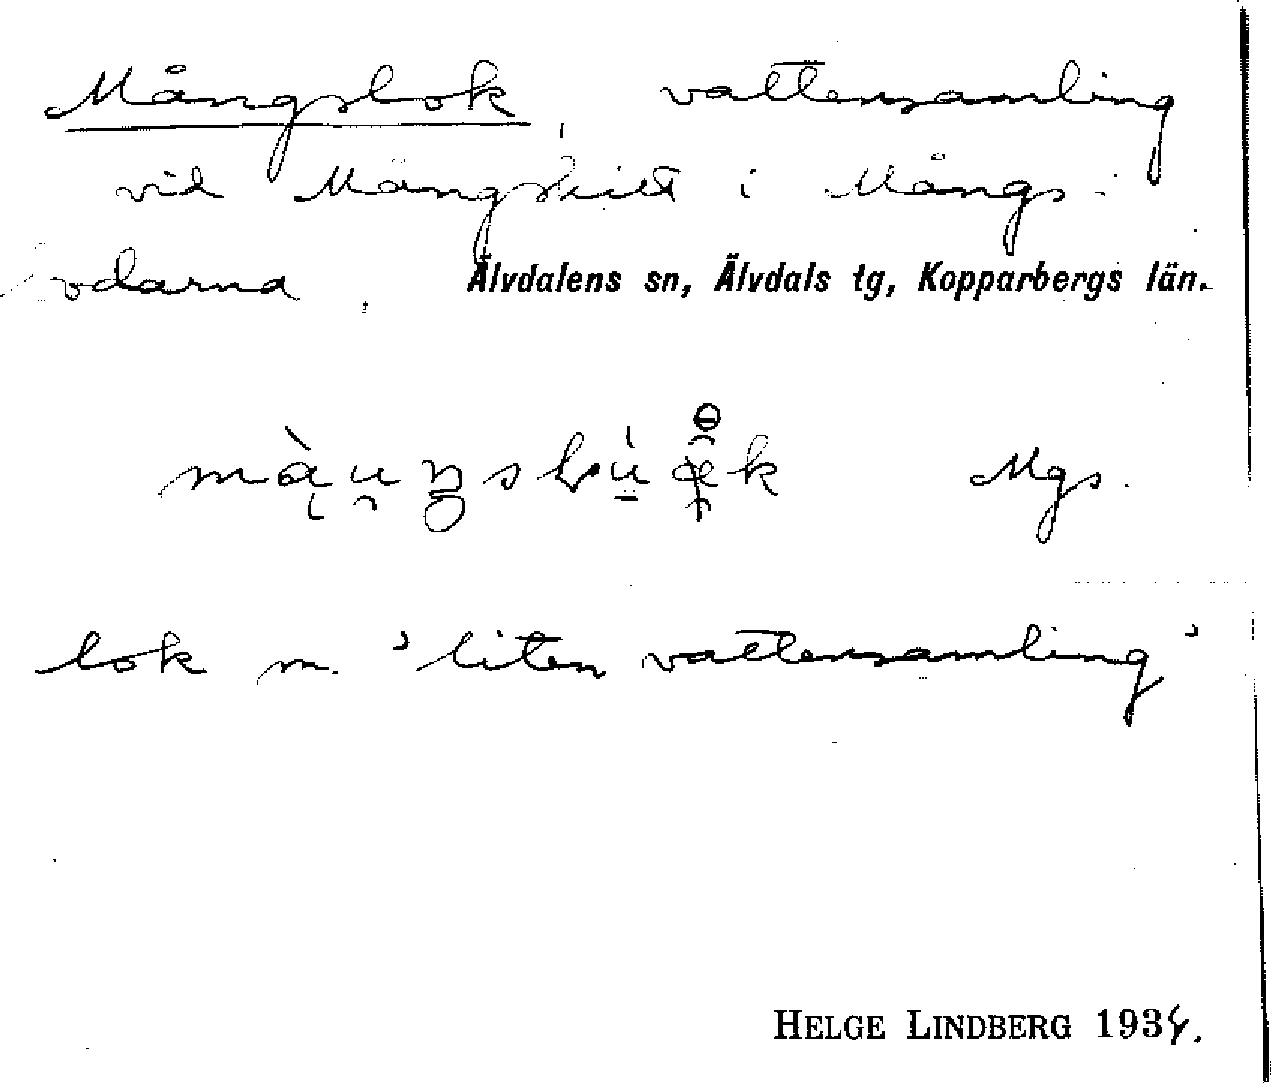 Mångslok, vattensamling
vid Mångskilt i Mångs-
odarna, Älvdalens sn, Älvdals tg, Kopparbergs län.
Mgs.
lok m. 'liten vattensamling'
HELGE LINDBERG 1934.